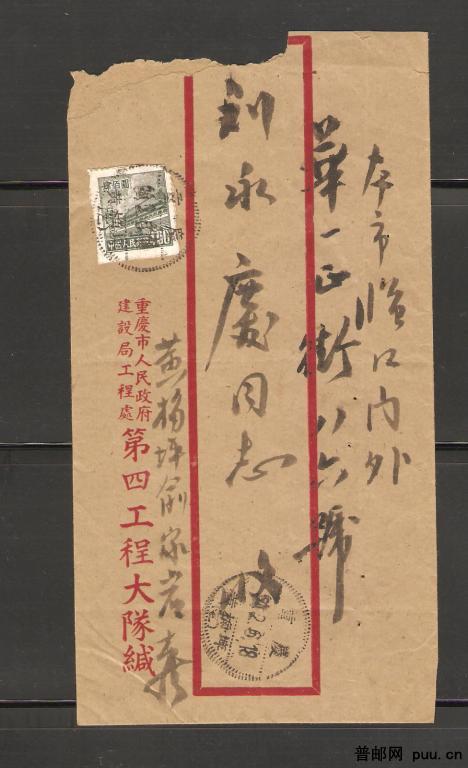 本市臨江门外
華一正街八六號
刘永慶同志
收
重慶市人民政府
建設局工程處
第四工程大隊緘
黄桷坪俞家岩
中國人民
重慶
普邮网 puu.cn